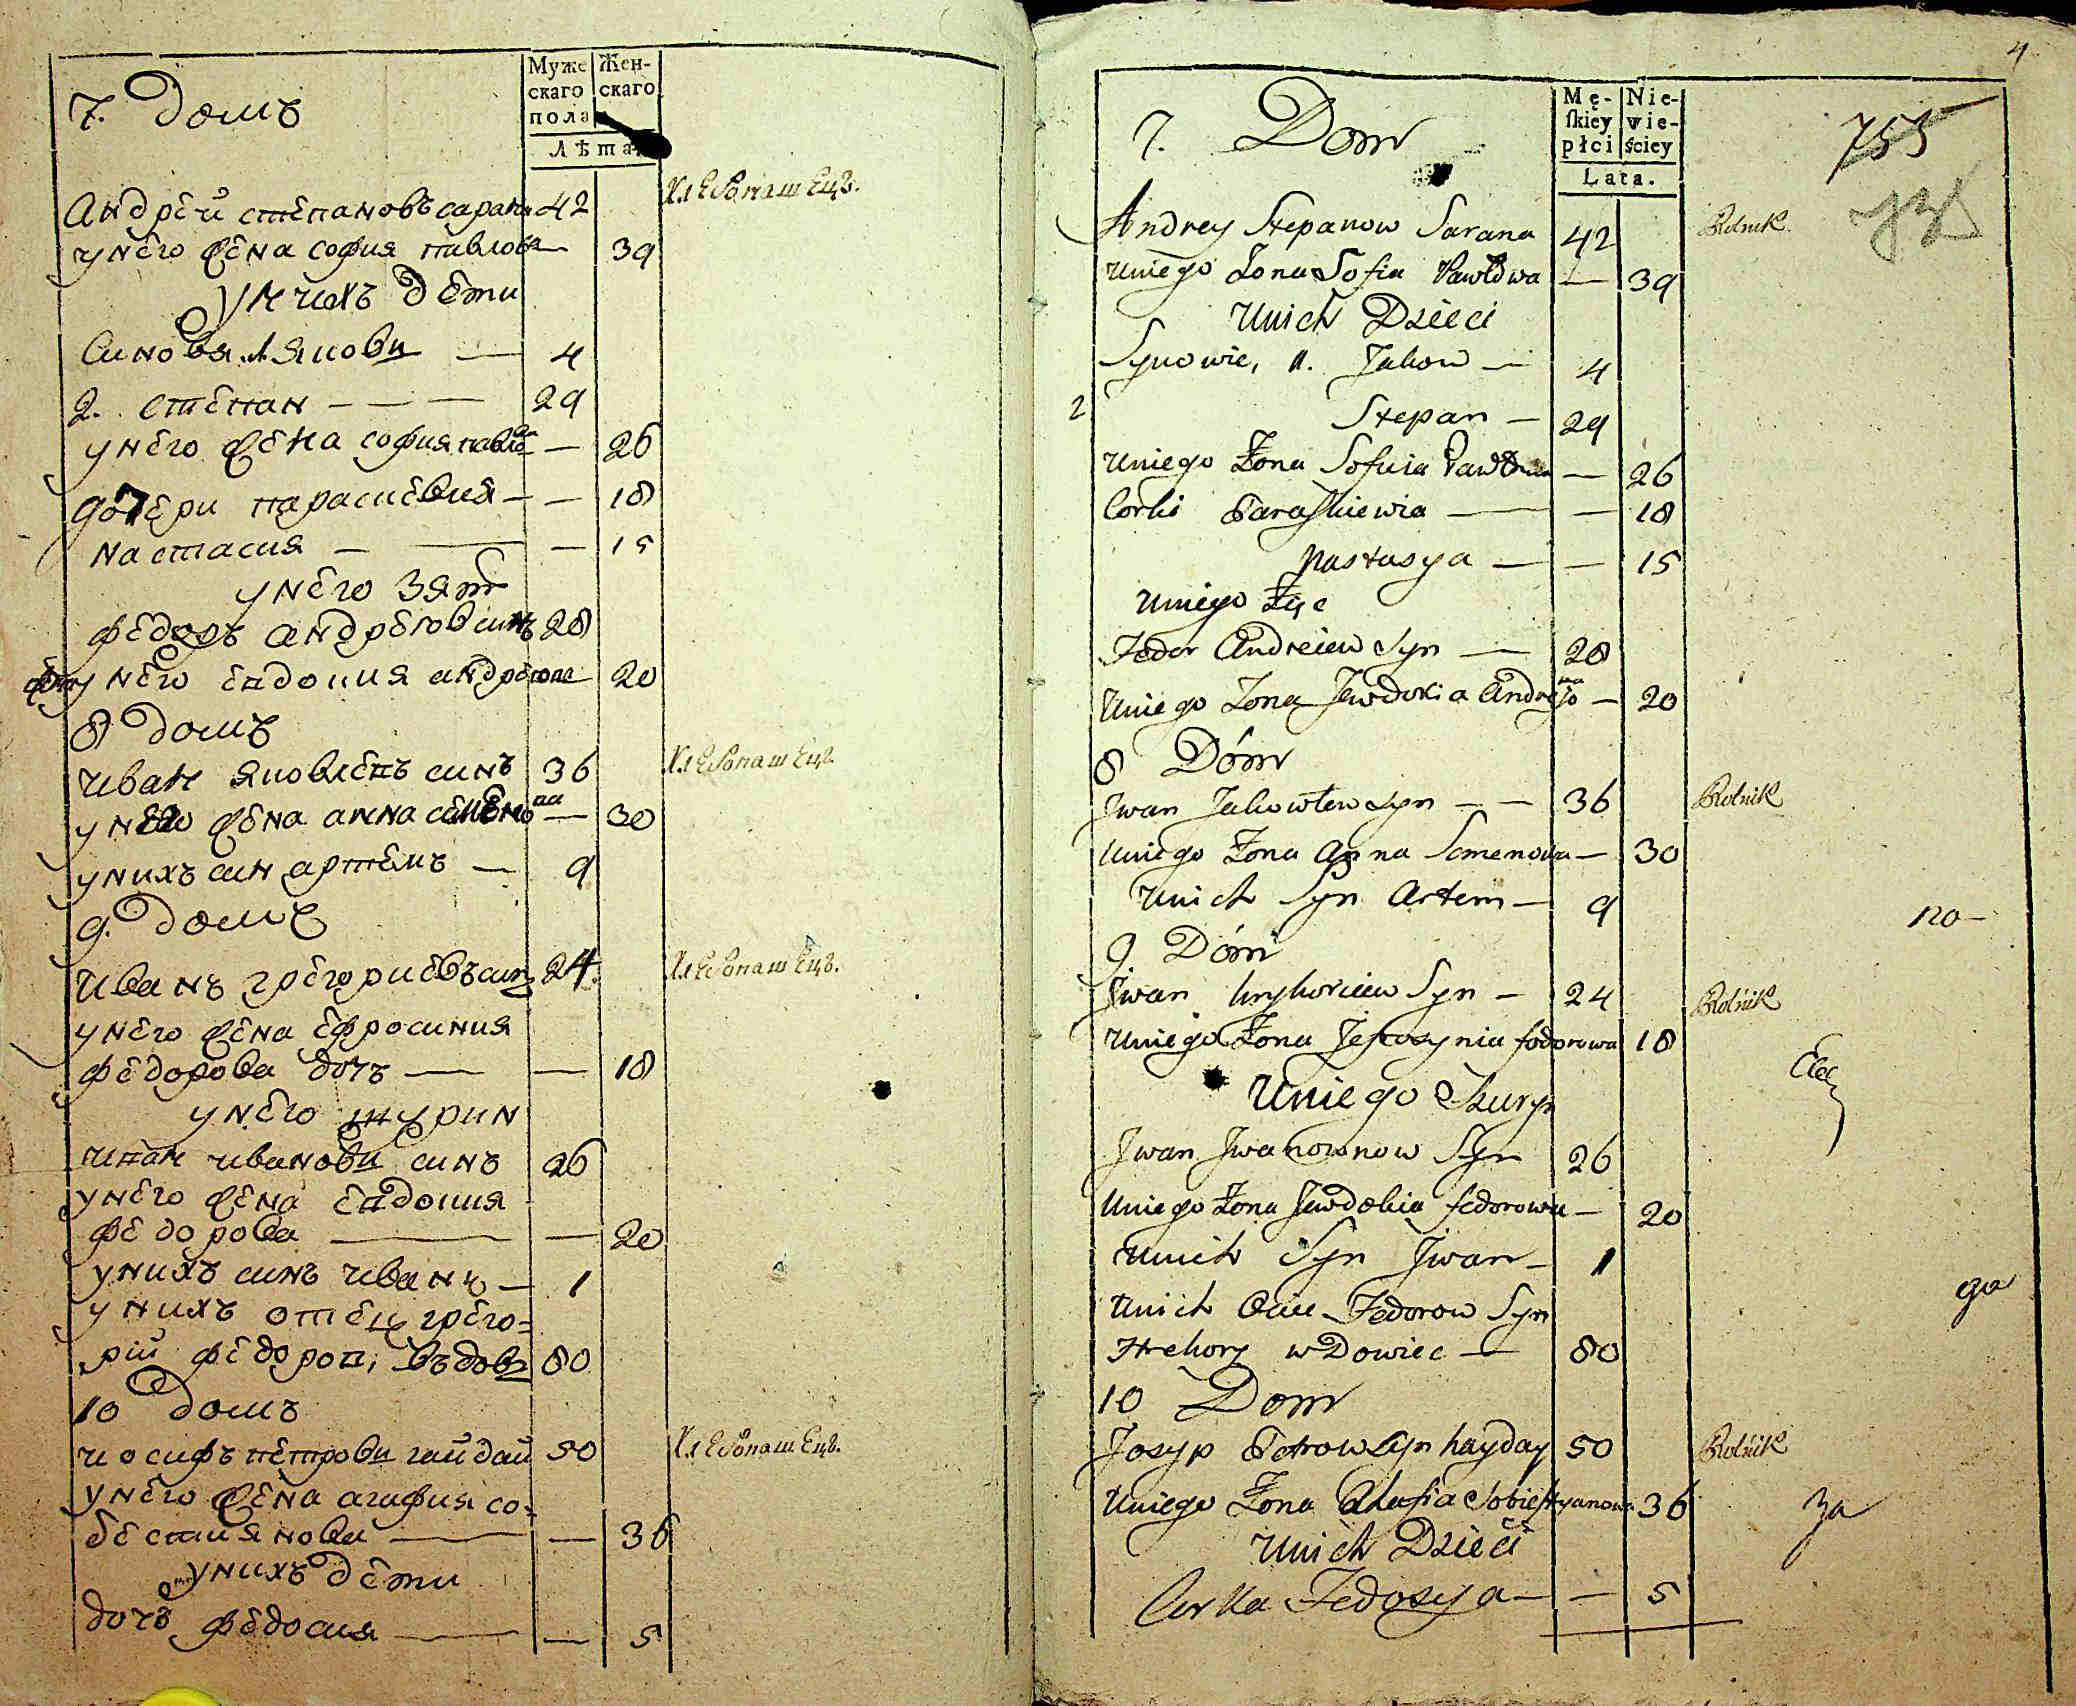 Муже
скаго
пола
Жен-
скаго
Лѣта
7. Домъ
Андрей степановъ сарана 42
унего жена софия павлова — 39
у них дети
Синовя .1. Якови — 4
2. степан — — — 29
унего жена софия павло — 26
дочери параскевия — — 18
настасия — — — 15
унего зят
федоръ андреюв синъ 28
унего евдокия андреюва 20
8 домъ
иван яковлевъ синъ 36
унего жена анна семено ва — 30
унихъ син артемъ — 9
9. домъ
иванъ грегориевъ син 24.
унего жена ефросиния
федорова дочъ — — 18
унего шурин
иван иванови синъ 26
унего жена евдокия
федорова — — 20
унихъ синъ иванъ — 1
унихъ отец грего=
рий федоров, въдовъ 80
10 домъ
иосифъ петрови гайдай 50
унего жена агафия со=
бестиянова — — 36
унихъ дети
дочъ федосия — — 5
Хлебопашецъ.
Хлебопашецъ.
Хлебопашецъ.
Хлебопашецъ.
4
Mę-
ſkiey
płci
Nie-
wie-
ściey
Lata.
755
7. Dom
Andrey Stepanow Sarana 42 Rolnik
uniego Żona Sofia Pawłowa — 39
Unich Dzieci
Synowie, 1. Jakow — 4
2 Stepan — 29
uniego Żona Sofuia Pawłowa — 26
Corki Paraſkiewia — — 18
Nastasya — — 15
uniego Zęc
Fedor Andreiew Syn — 28
Uniego Żona Jewdokia Andrejo wa — 20
8 Dóm
Jwan Jakowlew Syn — — 36 Rolnik
Uniego Żona Anna Semenowa — 30
Unich Syn Artem — 9
no —
9 Dóm
Jwan hryhoriew Syn — 24 Rolnik
uniego Żona Jefrosynia fedorowa 18
Uniego Szuryn
Jwan Jwanownow Syn 26
Uniego Żona Jewdokia fedorowa — 20
Unich Syn Jwan — 1
Unich Ociec Fedorow Syn
Hrehory wDowiec — 80
да
10 Dom
Josyp Petrow Syn hayday 50 Rolnik
Uniego Żona Ahafia Sobieſtyanowa 36
за
Unich Dzieci
Corka Fedosya — — 5